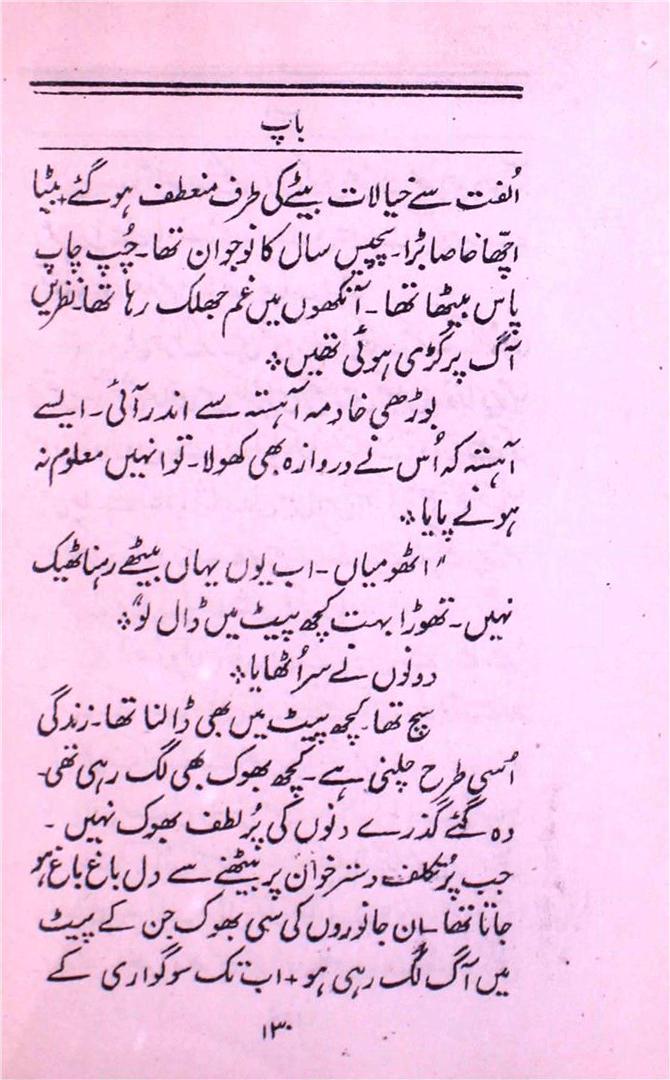 باپ
اُلفت سے خیالات بیٹے کی طرف منعطف ہو گئے + بیٹا
اچھا خاصا بڑا۔ پچیس سال کا نوجوان تھا۔ چُپ چاپ
پاس بیٹھا تھا۔ آنکھوں میں غم جھلک رہا تھا۔ نظریں
آگ پر گڑی ہوئی تھیں ⁘
بوڑھی خادمہ آہستہ سے اندر آئی۔ ایسے
آہستہ کہ اُس نے دروازہ بھی کھولا۔ تو انہیں معلوم نہ
ہونے پایا ⁘
"اٹھو میاں۔ اب یوں یہاں بیٹھے رہنا ٹھیک
نہیں۔ تھوڑا بہت کچھ پیٹ میں ڈال لو" ⁘
دونوں نے سر اُٹھایا ⁘
سچ تھا۔ کچھ پیٹ میں بھی ڈالنا تھا۔ زندگی
اُسی طرح چلنی ہے۔ کچھ بھوک بھی لگ رہی تھی۔
وہ گئے گذرے دنوں کی پُر لطف بھوک نہیں۔
جب پُر تکلف دسترخوان پر بیٹھنے سے دل باغ باغ ہو
جاتا تھا۔ ان جانوروں کی سی بھوک جن کے پیٹ
میں آگ لگ رہی ہو + اب تک سوگواری کے
۱۳۰